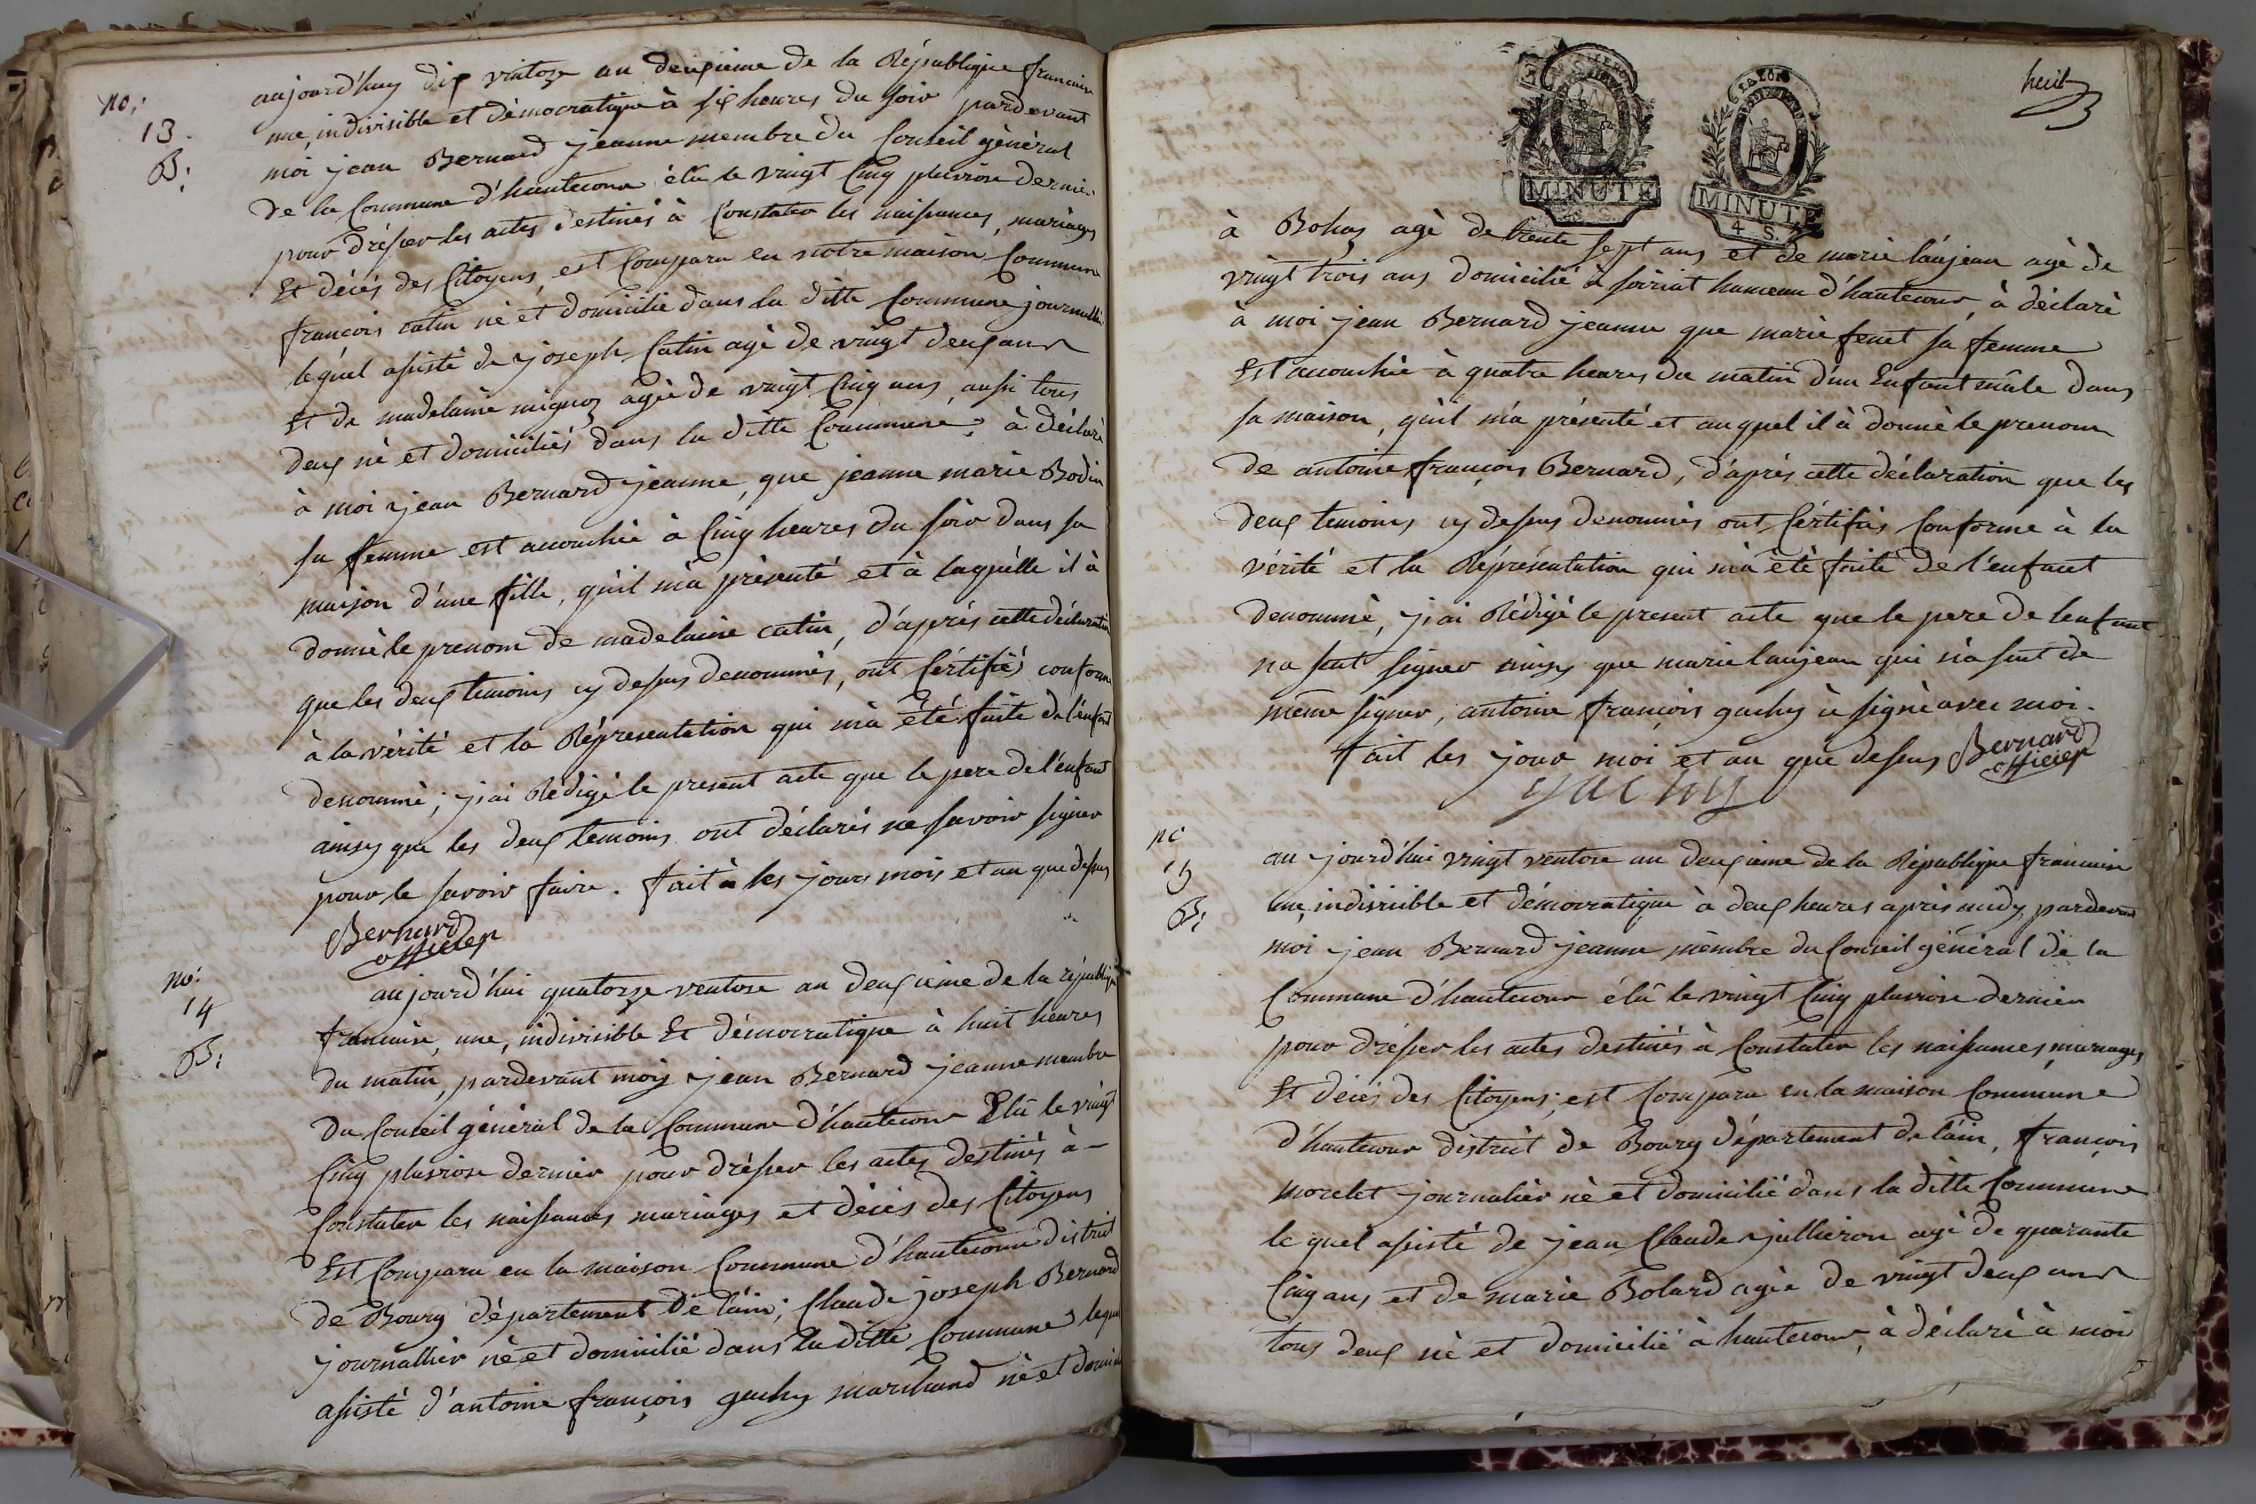 no:
13.
B:
aujourd'huy dix vintoze an deuxieme de la République francaise
une, indivisible et démocratique à six heures du soir pardevant
moi jean Bernard jeanne membre du Conseil général
de la Commune d'hautecour élu le vingt Cinq pluviose dernier
pour drésser les actes destinés à Constater les naissances, mariages
Et décés des Citoyens, est Comparu en notre maison Commune
francois catin né et domicilié dans la ditte Commune journallier
lequel assisté de joseph Catin agé de vingt deux ans
Et de madelaine mignoz agée de vingt Cinq ans, aussi tous
deux né et domiciliés dans la ditte Commune, à déclaré
à moi jean Bernard jeanne, que jeanne marie Bodin
sa femme est accouchée à Cinq heures du soir dans sa
maison d'une fille, qu'il m'a présenté et à laquélle il à
donné le prenom de madelaine catin, d'aprés cette déclaration
que les deux temoins cy dessus denommés, ont Cértifiés conforme
à la vérité et la Répresentation qui m'a été faite de l'enfant
denommé; j'ai Rédigé le present acte que le pere de l'enfant
ainsy que les deux temoins ont déclarés ne savoir signer
pour le savoir faire. fait à les jours mois et an que dessus
Bernard
officier
no:
14
B:
aujourd'hui quatorze ventose an deuxieme de la république
francaise, une, indivisible Et démocratique à huit heures
du matin, pardevant moy jean Bernard jeanne membre
du Conseil général de la Commune d'hautecour Elu le vingt
Cinq pluviose dernier pour drésser les actes destinés à -
Constater les naissances mariages et décés des Citoyens
Est Comparu en la maison Commune d'hautecour district
de Bourg département de l'ain; Claude joseph Bernard
journallier né et domicilié dans la ditte Commune lequel
assisté d'antoine françois gachy marchand né et domicilié
huit
MINUTE
MINUTE
4 S.
à Bohas agé de trente sept ans et de marie laujeau agé de
vingt trois ans domicilié à soiriat hameau d'hautecour, à déclaré
à moi jean Bernard jeanne que marie feuet sa femme
Est accouchée à quatre heures du matin d'un Enfant mâle dans
sa maison, qu'il m'a présenté et auquel il à donné le prenom
de antoine françois Bernard, d'aprés cette déclaration que les
deux temoins cy dessus denommés ont Cértifiés Conforme à la
vérité et la Répresentation qui m'a été faite de l'enfant
denommé, j'ai Rédigé le present acte que le pere de l'enfant
n'a seut signer ainsy que marie laujeau qui n'a seut de
même signer, antoine françois gachy à signé avec moi.
fait les jour moi et an que dessus Bernard
officier
gachy
no
15
B:
au jourd'hui vingt ventose an deuxieme de la République francaise
une, indivisible et démocratique à deux heures aprés midy pardevant
moi jean Bernard jeanne mémbre du Conseil général de la
Commune d'hautecour élû le vingt Cinq pluviose dernier
pour drésser les actes destinés à Constater les naissances, mariages
Et décés des Citoyens; est Comparu en la maison Commune
d'hautecour district de Bourg département de l'ain, françois
morelet journalier né et domicilié dans la ditte Commune
le quel assisté de jean Claude jullieron agé de quarante
Cinq ans, et de marie Bolard agée de vingt deux ans
tous deux né et domicilié à hautecour, à déclaré à moi